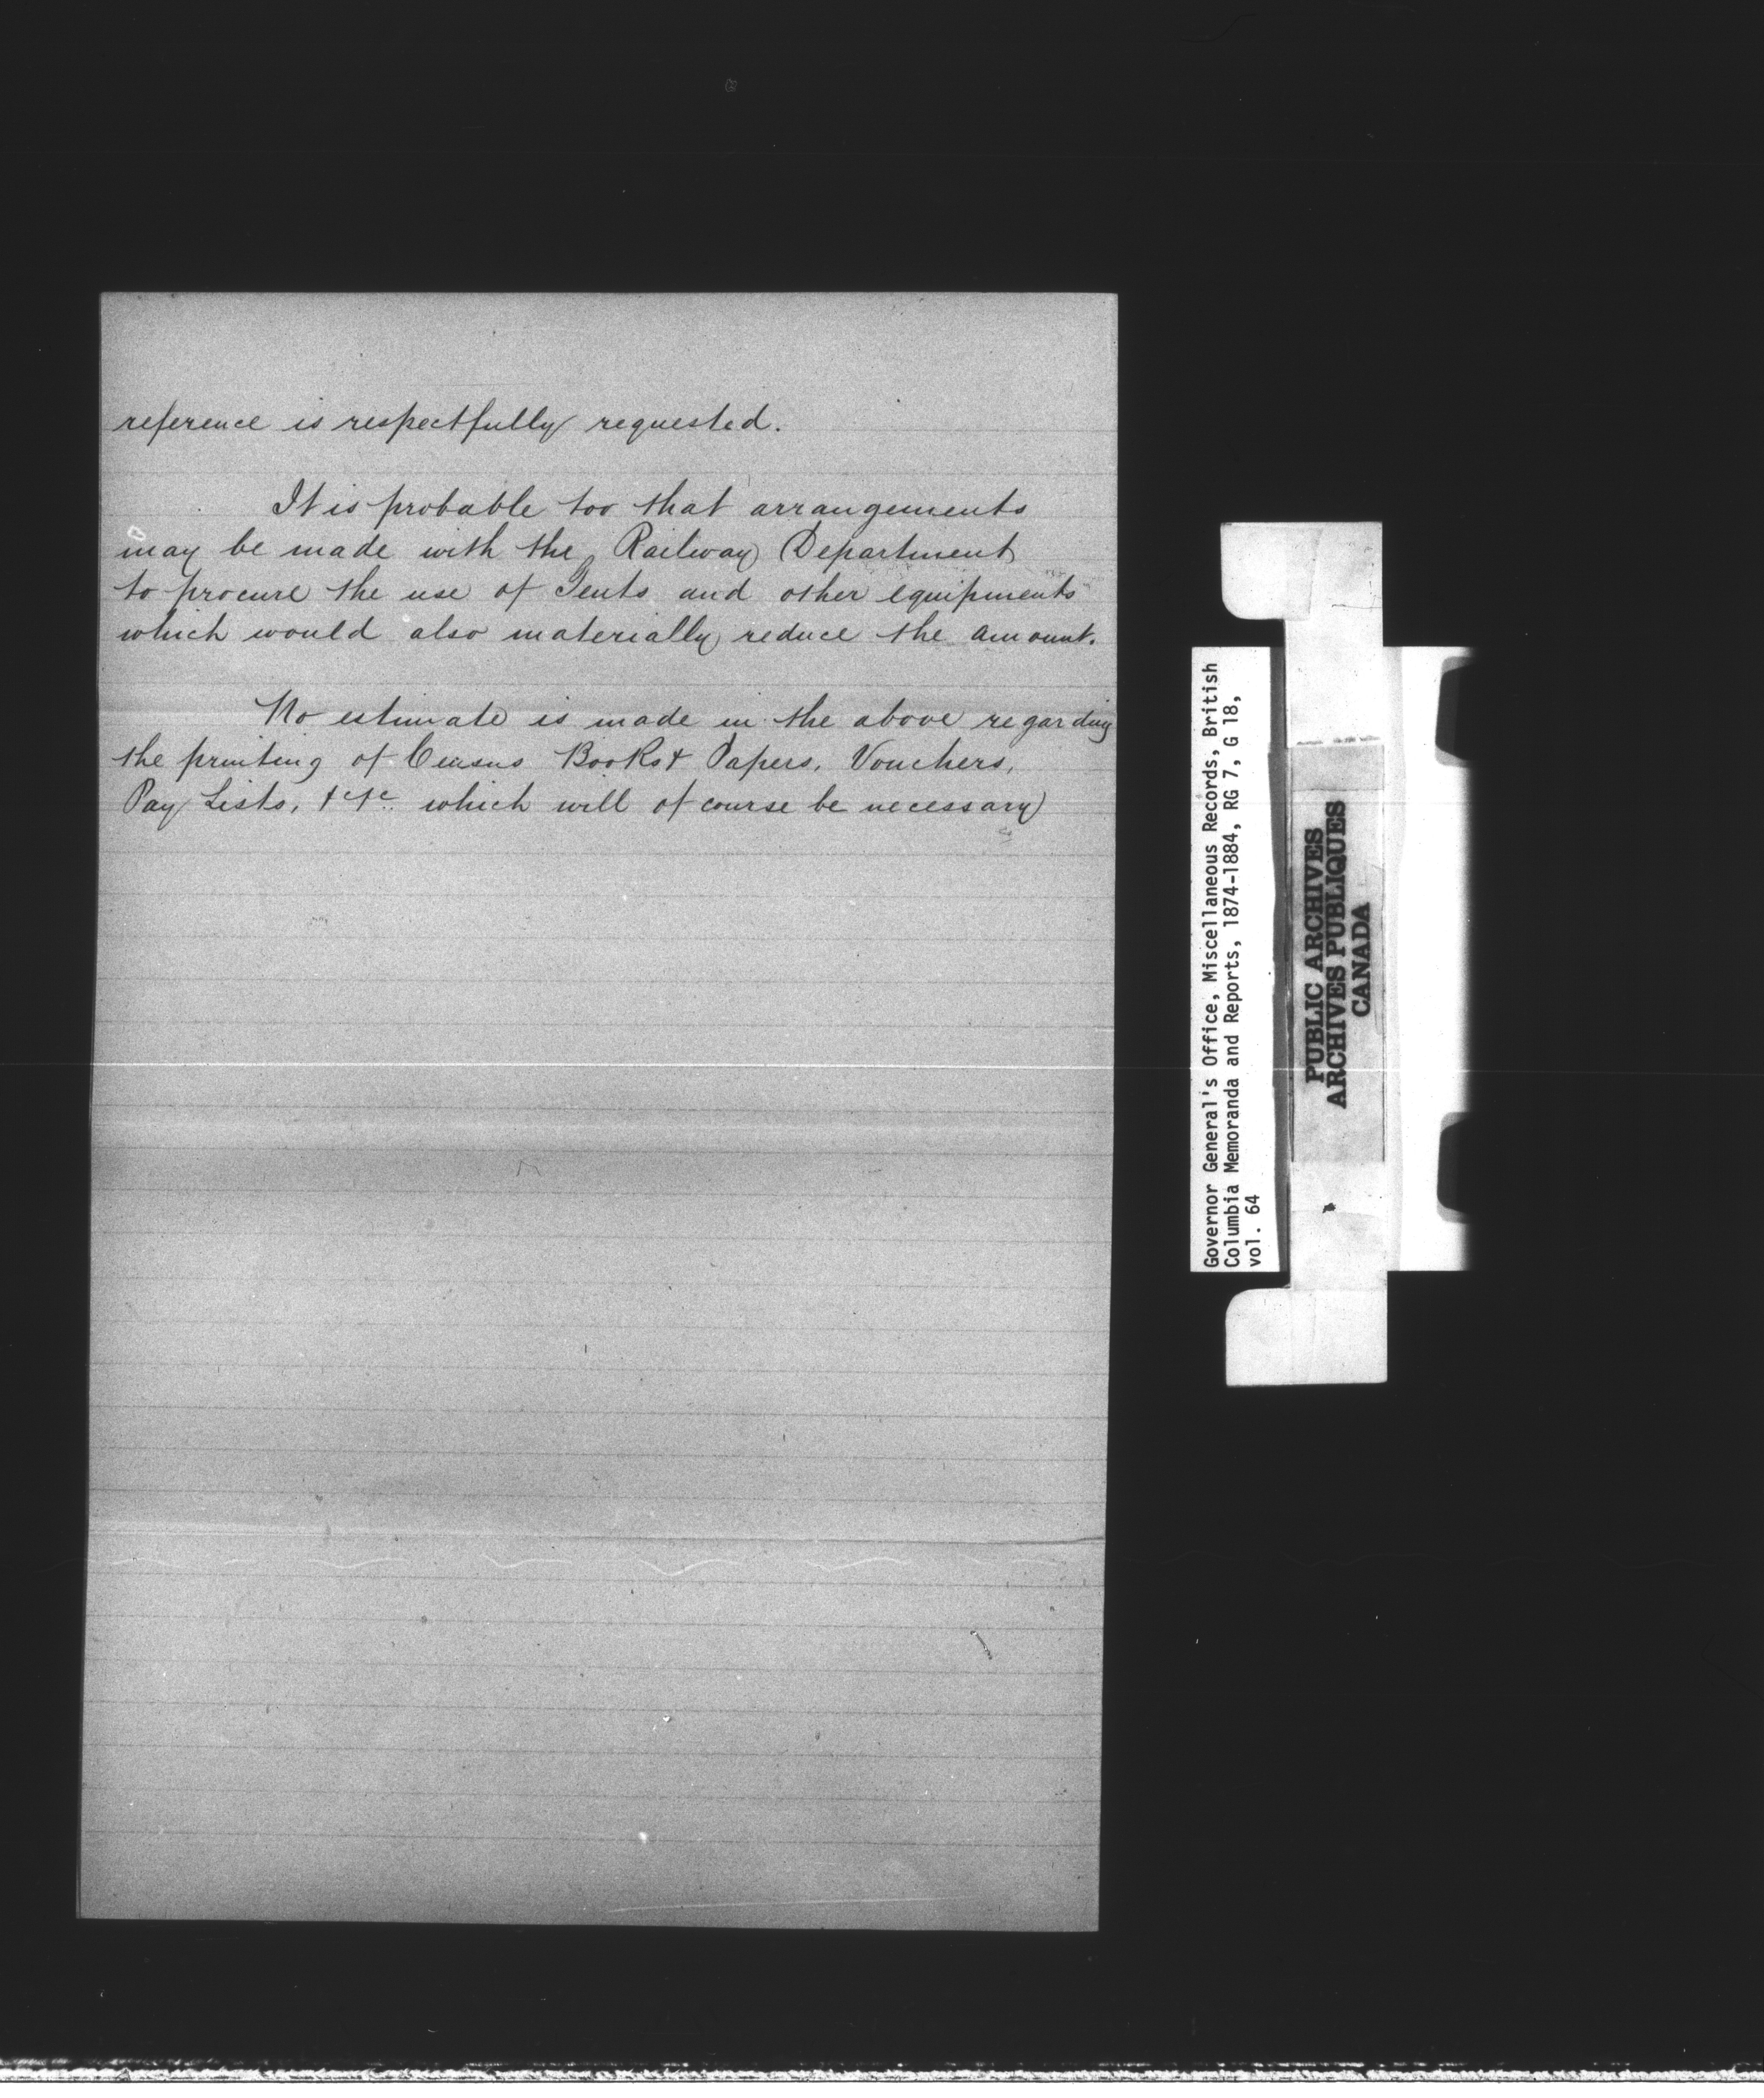 reference is respectfully requested.
It is probable too that arrangements
may be made with the Railway Department
to procure the use of Tents and other equipments
which would also materially reduce the amount.
No estimate is made in the above regarding
the printing of Census Books & Papers, Vouchers,
Pay Lists, &c &c which will of course be necessary
Governor General's Office, Miscellaneous Records, British
Columbia Memoranda and Reports, 1874-1884, RG 7, G 18,
vol. 64
PUBLIC ARCHIVES
ARCHIVES PUBLIQUES
CANADA